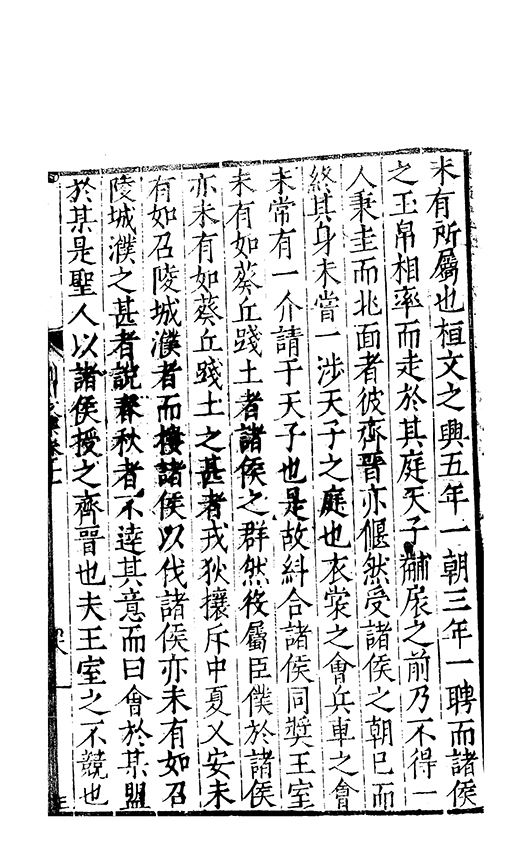 未有所屬也桓文之興五年一朝三年一聘而諸侯
之玉帛相率而走於其庭天子黼扆之前乃不得一
人秉圭而北面者彼齊晉亦偃然受諸侯之朝已而
終其身未嘗一涉天子之庭也衣裳之會兵車之會
未常有一介請于天子也是故糾合諸侯同奬王室
未有如葵丘踐土者諸侯之群然役屬臣僕於諸侯
亦未有如葵丘踐土之甚者戎狄攘斥中夏乂安未
有如召陵城濮者而摟諸侯以伐諸侯亦未有如召
陵城濮之甚者說春秋者不達其意而曰會於某盟
於某是聖人以諸侯授之齊晉也夫王室之不競也